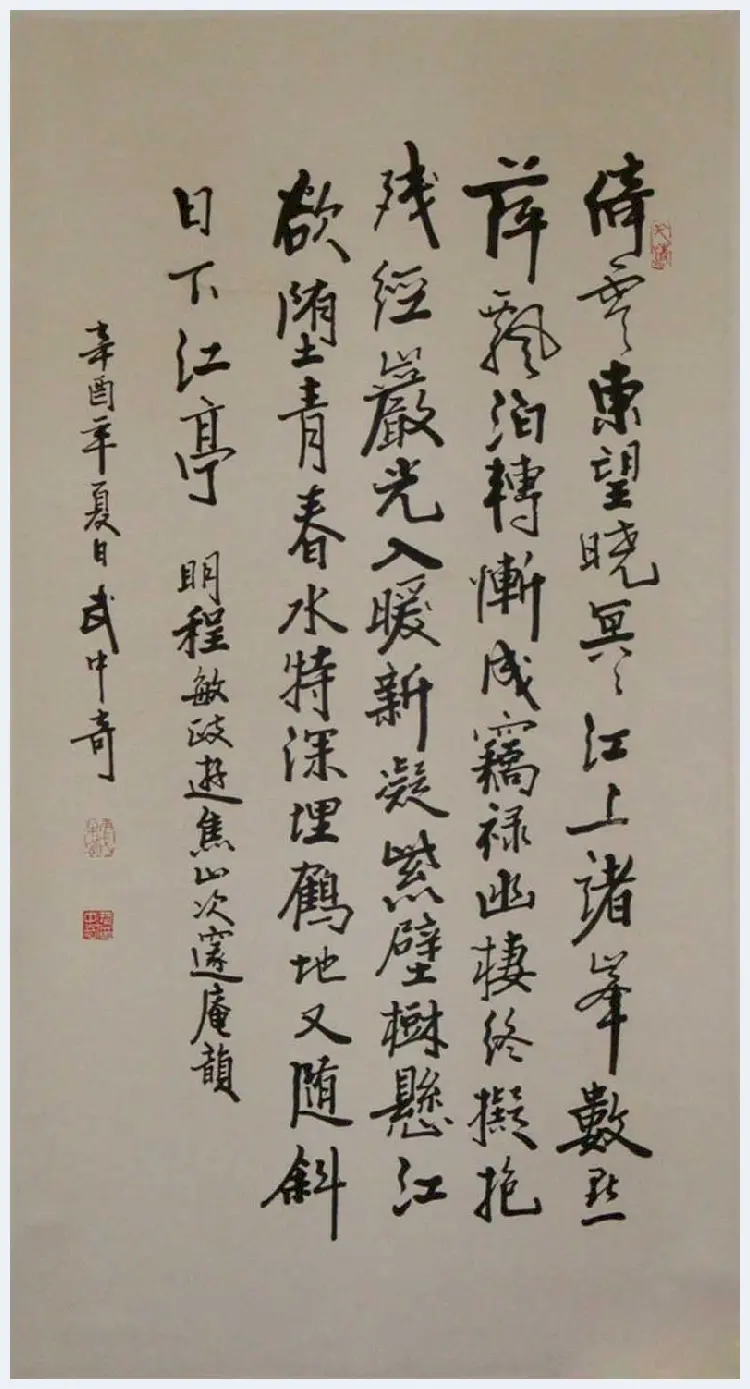 倚雲東望曉冥冥江上諸峯數點
萍飄泊轉慚成竊祿幽棲終擬抱
殘經巖光入暖新凝紫壁樹懸江
欲墮青春水特深埋鶴地又随斜
日下江亭 明程敏政遊焦山次邃庵韻
辛酉年夏日武中奇